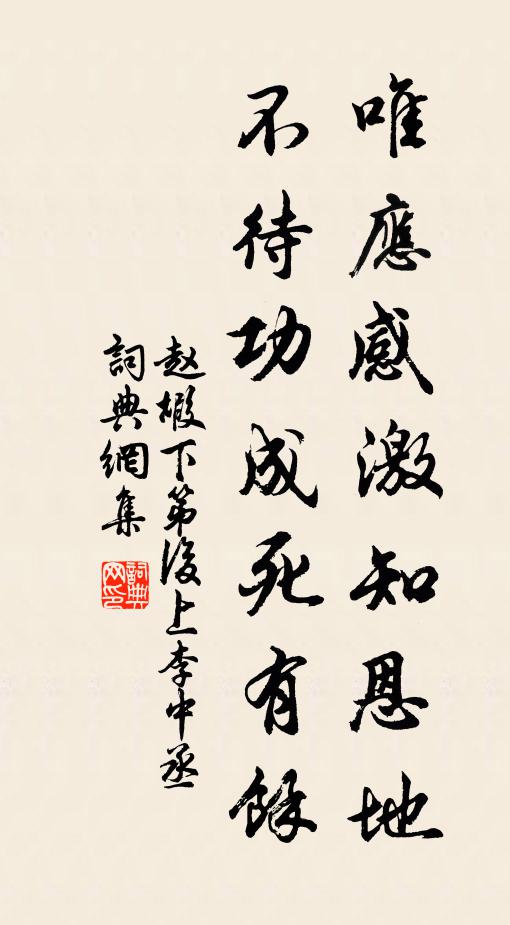 唯應感激知恩地
不待功成死有餘
赵嘏下第後上李中丞
詞典網集
詞典
网印